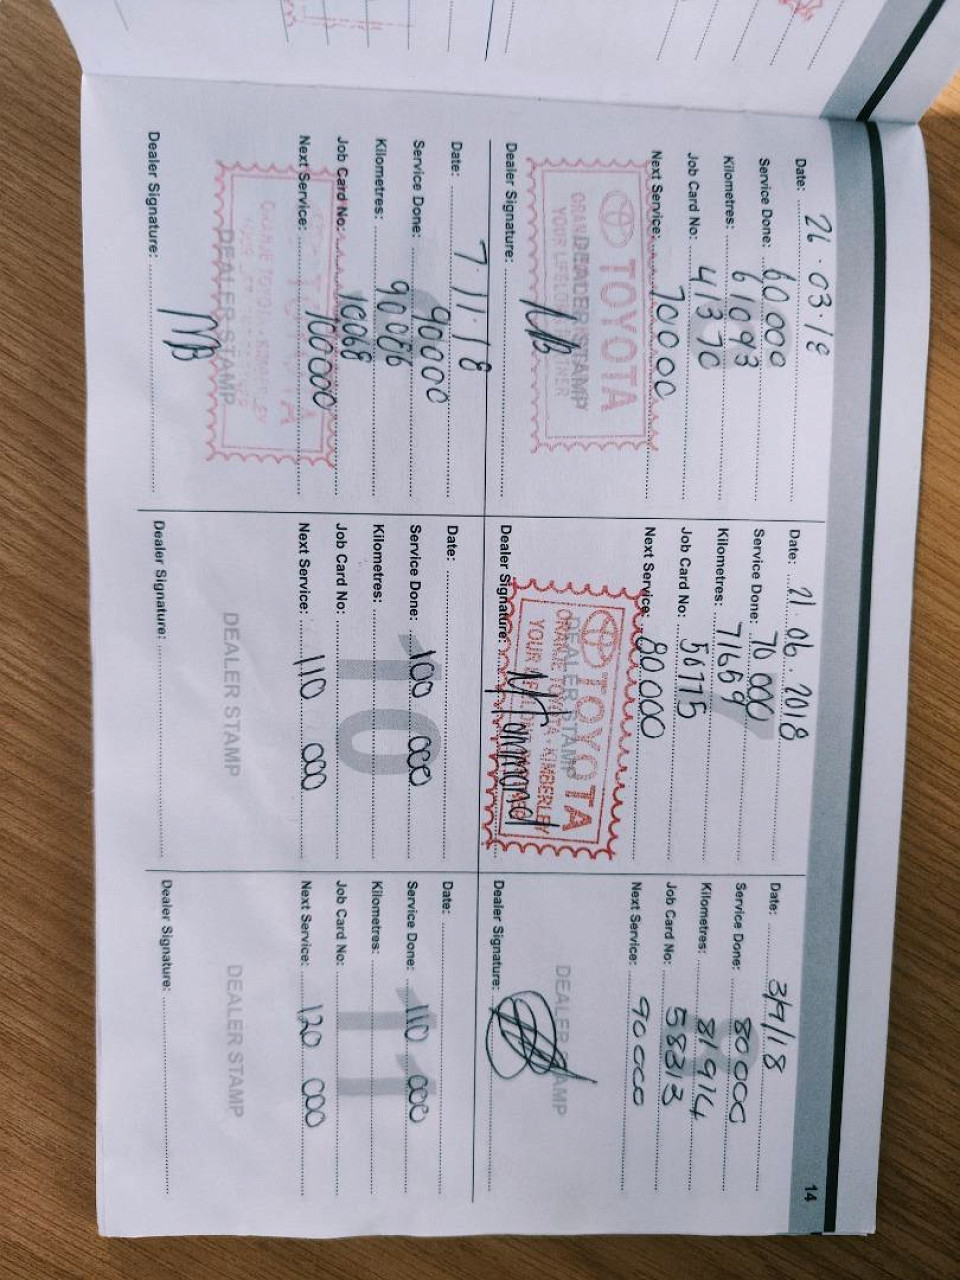 14
Date: 26.03.18
Service Done: 60 000
Kilometres: 61093
Job Card No: 41370
Next Service: 70000
TOYOTA
DEALER STAMP
YOUR LIFELONG PARTNER
Dealer Signature:
Date: 21.06.2018
Service Done: 70 000
Kilometres: 71669
Job Card No: 56115
Next Service: 80000
TOYOTA
ORANJE TOYOTA - KIMBERLEY
DEALER STAMP
Dealer Signature:
Date: 3/9/18
Service Done: 80 000
Kilometres: 81914
Job Card No: 58313
Next Service: 90 000
DEALER STAMP
Dealer Signature:
Date: 7.11.18
Service Done: 90000
Kilometres: 90086
Job Card No: 10068
Next Service: 100000
DEALER STAMP
Dealer Signature:
10
Date:
Service Done: 100 000
Kilometres:
Job Card No:
Next Service: 110 000
DEALER STAMP
Dealer Signature:
11
Date:
Service Done: 110 000
Kilometres:
Job Card No:
Next Service: 120 000
DEALER STAMP
Dealer Signature: